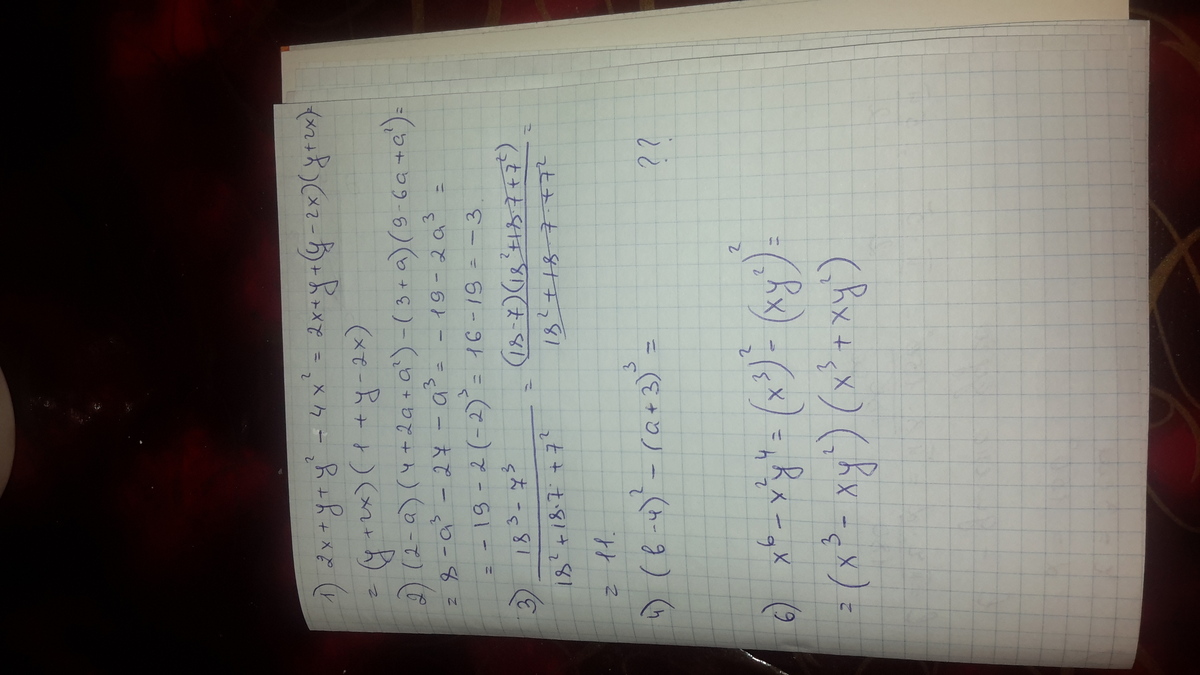 1) 2x + y + y² - 4x² = 2x + y + (y - 2x)(y + 2x) =
= (y + 2x)(1 + y - 2x)
2) (2 - a)(4 + 2a + a²) - (3 + a)(9 - 6a + a²) =
= 8 - a³ - 27 - a³ = - 19 - 2a³ =
= - 19 - 2(-2)³ = 16 - 19 = - 3.
3) (18³ - 7³)/(18² + 18·7 + 7²) = ((18 - 7)(18² + 18·7 + 7²))/(18² + 18·7 + 7²) =
= 11.
4) (b - 4)² - (a + 3)³ = ??
6) x⁶ - x²y⁴ = (x³)² - (xy²)² =
= (x³ - xy²)(x³ + xy²)